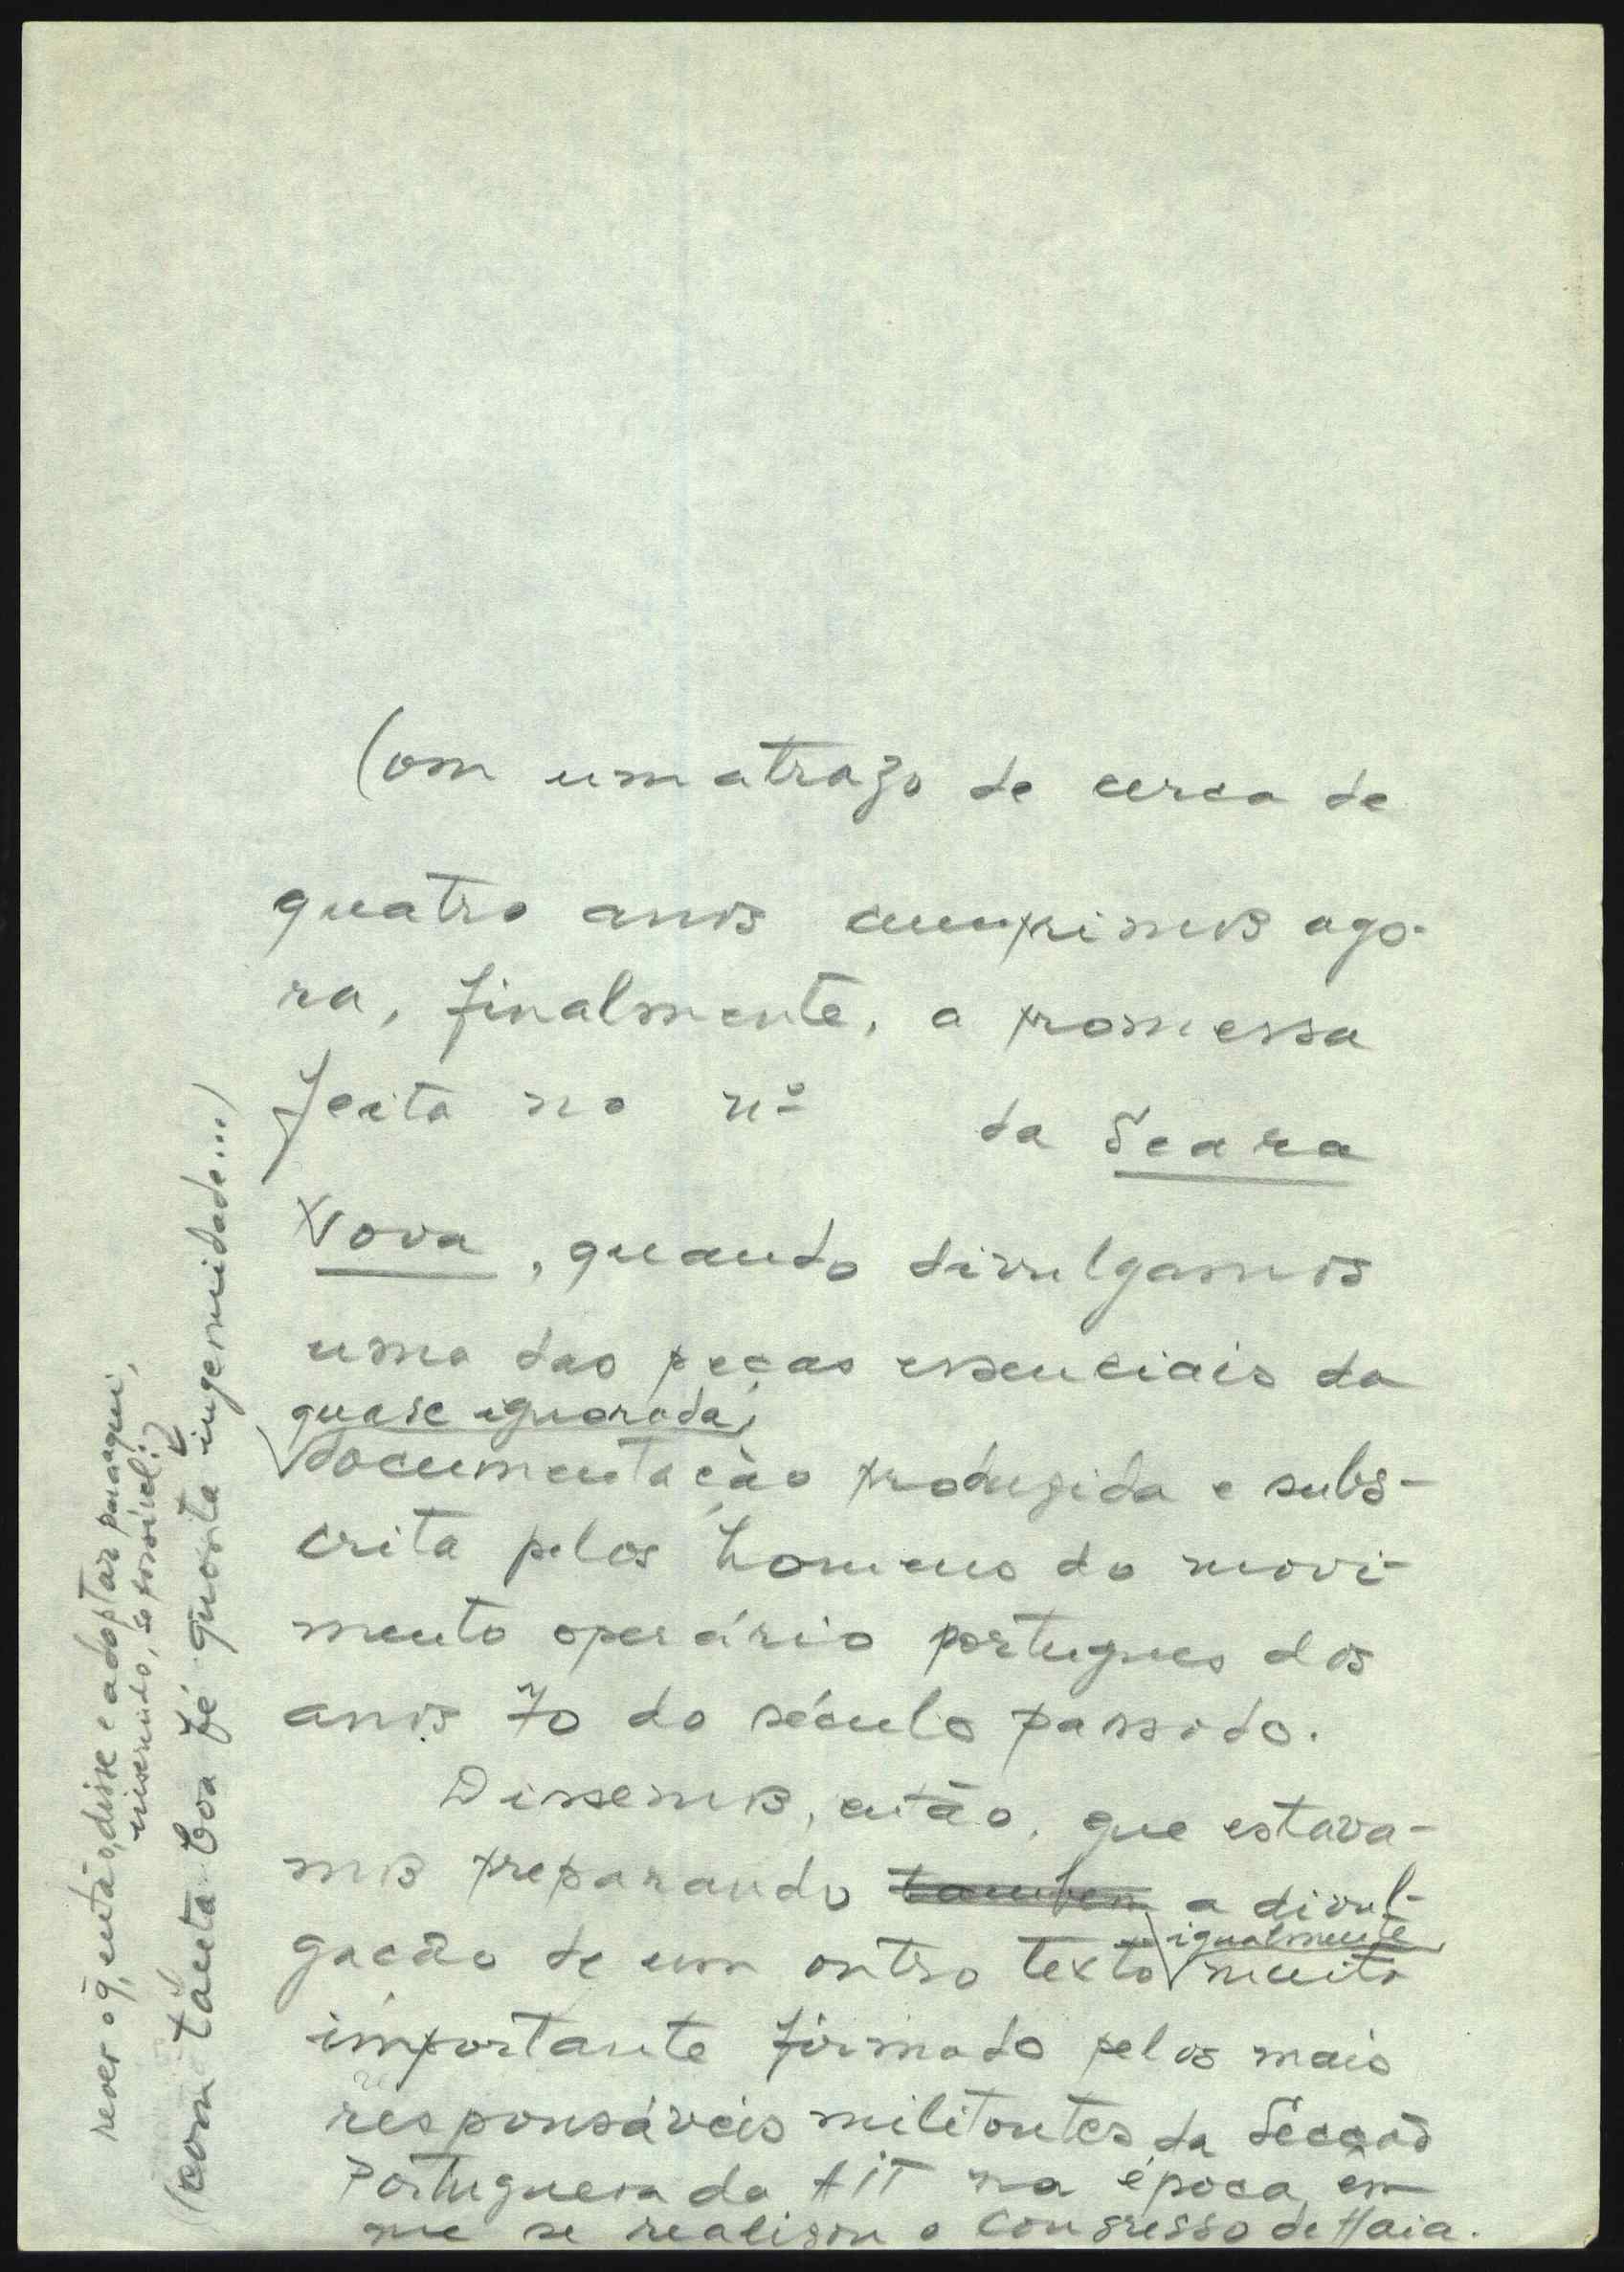 Com um atrazo de cerca de
quatro anos cumprimos ago-
ra, finalmente, a promessa
feita no nº da Seara
Nova, quando divulgamos
uma das peças essenciais da
quase ignorada,
documentação produzida e subs-
crita pelos homens do movi-
mento operário portugues dos
anos 70 do século passado.
Dissemos, então, que estava-
mos preparando tambem a divul-
gação de um outro texto
igualmente
muito
importante firmado pelos mais
responsáveis militantes da Secção
Portuguesa da AIT na época em
que se realisou o Congresso de Haia.
rever o q, então, disse e adoptar para aqui,
inserindo, se possível:
(com tanta boa fé quanta ingenuidade...)